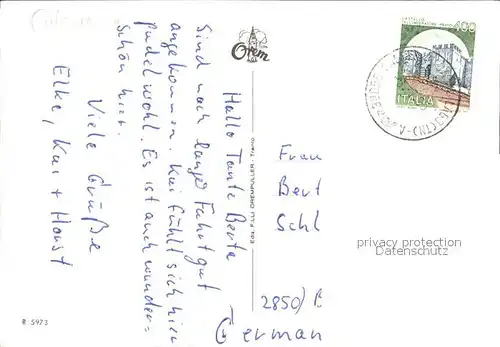 Hallo Tante Berta
Sind nach langer Fahrt gut
angekommen. Kai fühlt sich hier
pudelwohl. Es ist auch wunder=
schön hier.
Viele Grüße
Elke, Kai + Horst
Orem
Edit. F.LLI OREMPULLER - Trento
400
ITALIA
Frau
Bert
Schl
2850) B
German
privacy protection
Datenschutz
R 5973